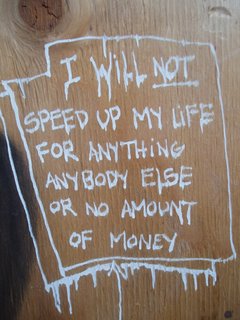 I WiLL NOT
SPEED UP MY LiFE
FOR ANYTHING
ANYBODY ELSE
OR NO AMOUNT
OF MONEY